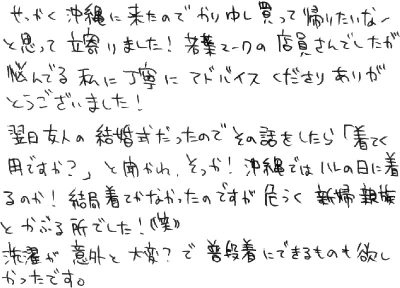 せっかく沖縄に来たのでかりゆし買って帰りたいな〜
と思って立寄りました！若葉マークの店員さんでしたが
悩んでる私に丁寧にアドバイスくださりありが
とうございました！
翌日友人の結婚式だったのでその話をしたら「着てく
用ですか？」と聞かれ、そっか！沖縄ではハレの日に着
るのか！結局着てかなかったのですが危うく新婦親族
とかぶる所でした！(笑)
洗濯が意外と大変？で普段着にできるものも欲し
かったです。